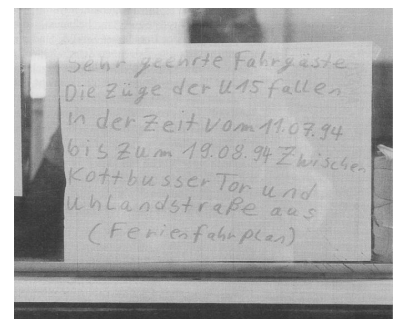 Sehr geehrte Fahrgäste
Die Züge der U15 fallen
in der Zeit vom 11.07.94
bis zum 19.08.94 Zwischen
Kottbusser Tor und
Uhlandstraße aus
(Ferienfahrplan)